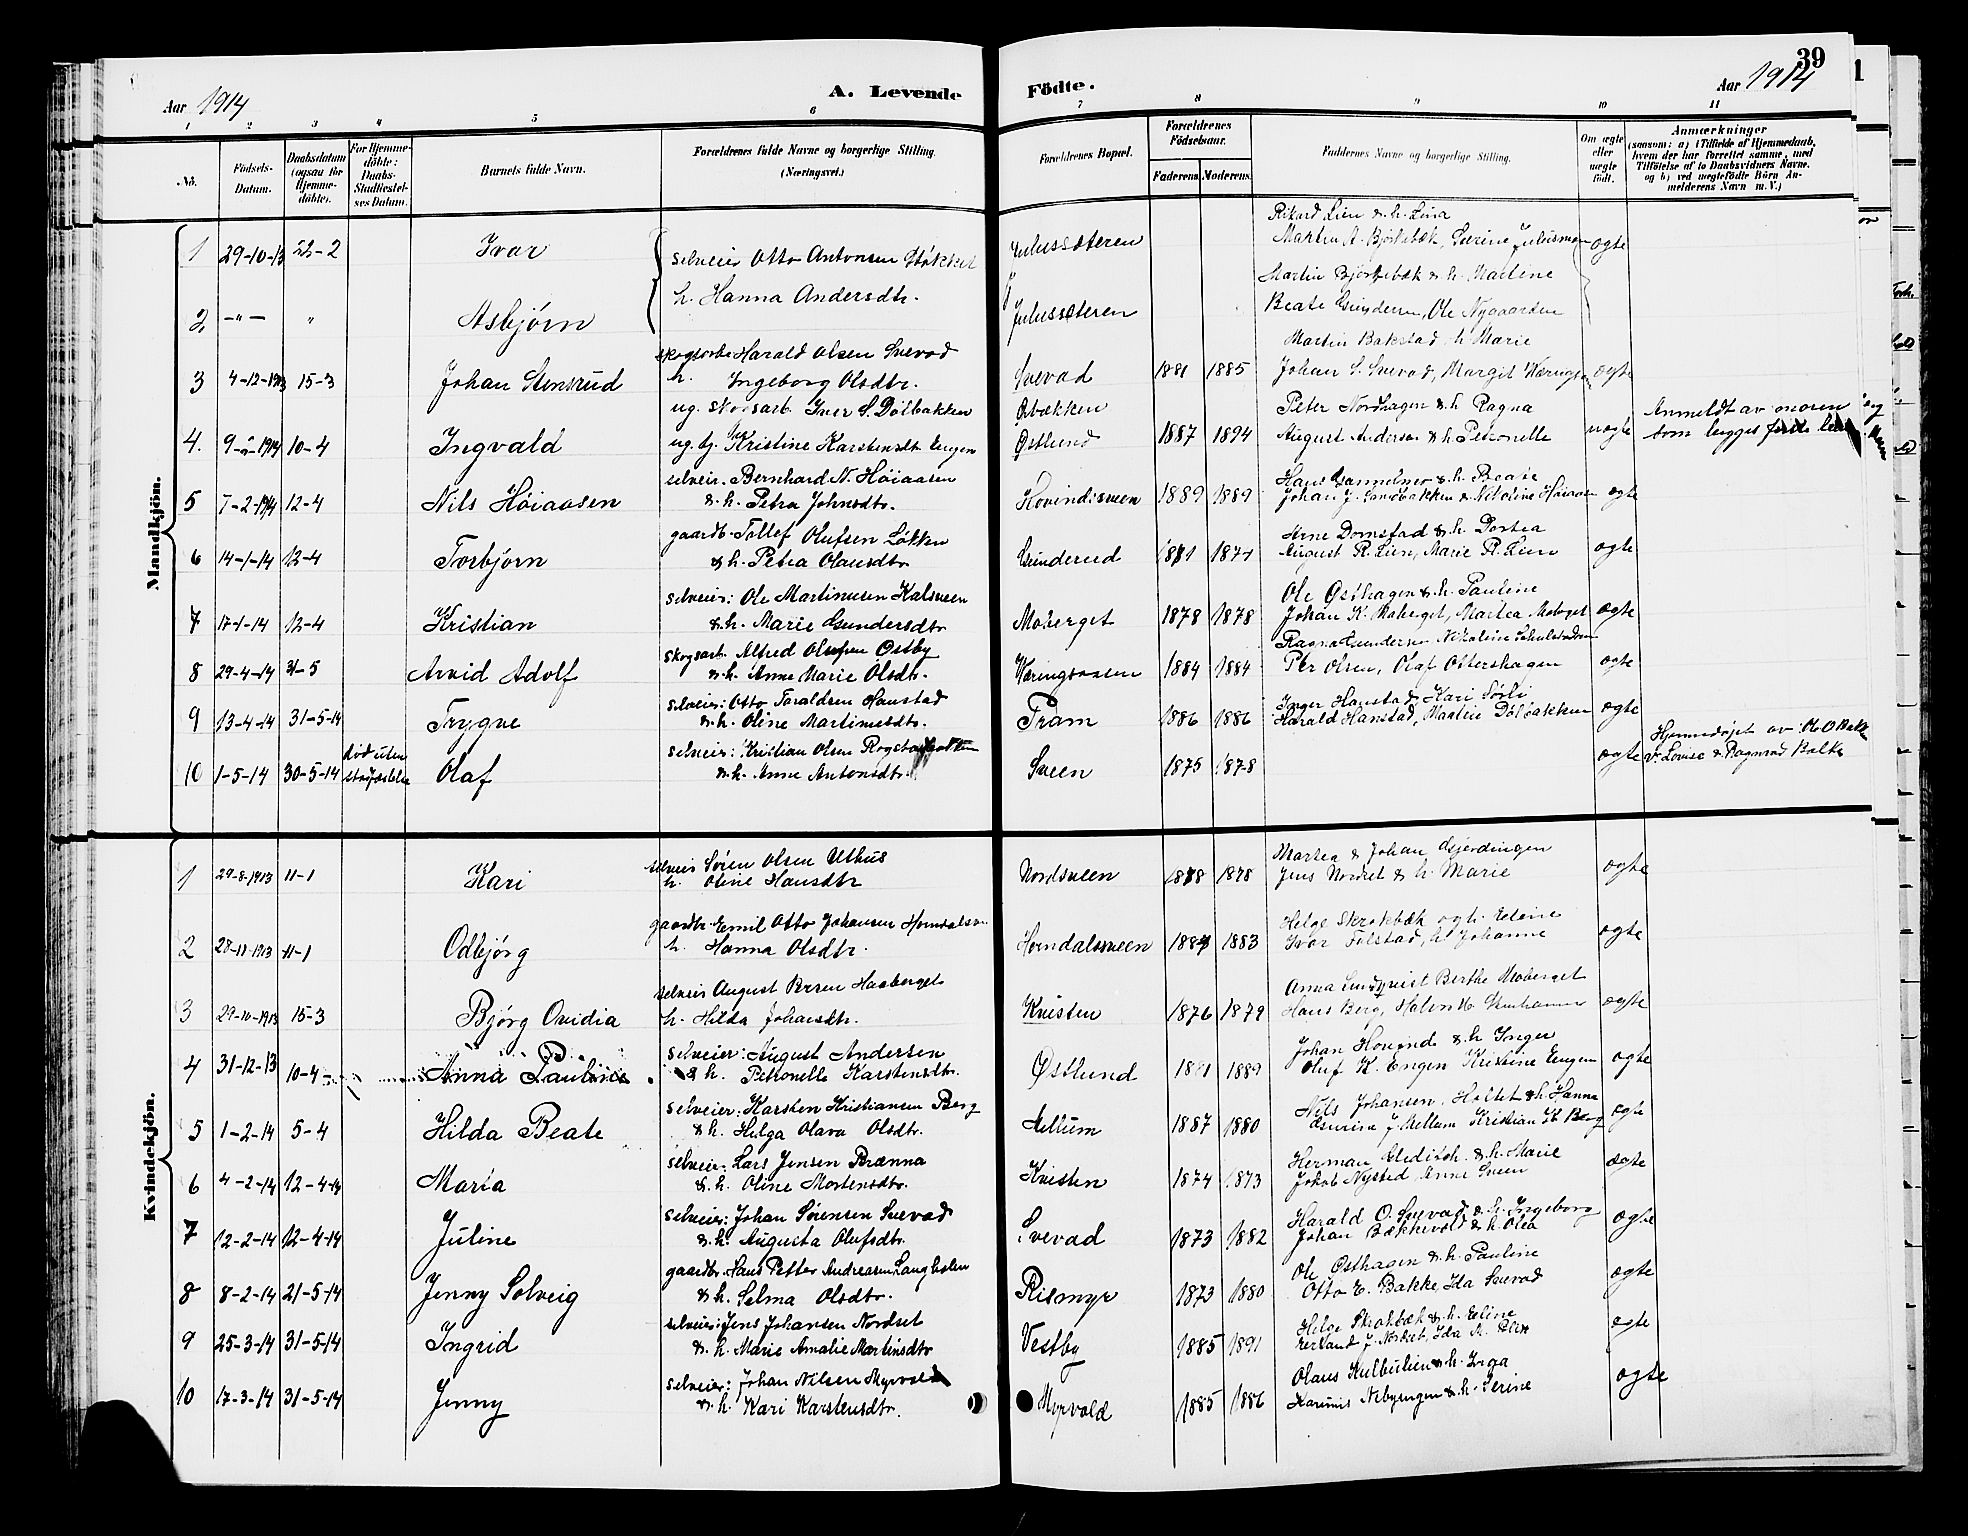 39
Aar 1914
A. Levende
Födte.
Aar 1914
1 2 3 4 5 6 7 8 9 10 11
No.
Födsels-Datum.
Daabsdatum (ogsaa for Hjemme-döbte).
For Hjemme-döbte: Daabs-Stadfæstel-ses Datum.
Barnets fulde Navn.
Forældrenes fulde Navne og borgerlige Stilling.
(Næringsvei.)
Forældrenes Bopæl.
Forældrenes Födselsaar.
Faderens. Moderens.
Faddernes Navne og borgerlige Stilling.
Om ægte eller uægte födt.
Anmærkninger
(saasom: a) i Tilfælde af Hjemmedaab,
hvem der har forrettet samme, med
Tilföielse af to Daabsvidners Navne.
og b) ved uægtefödte Börn An-
melderens Navn m. V.)
Mandkjön.
Rikard Lien & h. Lina
1 29-10-13 22-2 Ivar selveier Otto Antonsen Julussæteren Martin A. Bjørkebæk, ægte
h. Hanna Andersdtr. Martin Bjørkebæk & h. Martine
2 -"- " Asbjørn Julussæteren Beate Gunderen, Ole Nygaarden
Martin Bakstad, h. Marie
3 4-12-1913 15-3 Johan Stensrud Harald Olsen Svevad
h. Ingeborg Olsdtr. Svevad 1881 1885 Johan S. Svevad, Margit ægte
ug. skogsarb. Iver S. Dølbakken Øbækken Peter Nordhagen & h. Ragna Anmeldt av moren
4. 10-4 Ingvald ug. tj. Kristine Karstensdtr Engen Østlund 1887 1894 August Andersen & h. Petronelle uægte som
selveier. Bernhard N. Høiaasen & h. Beate
5 12-4 Nils Høiaasen & h. Petra Johnsdtr. 1889 1889 Johan J. Sandbakken & Nikoline Høiaasen ægte
gaardbr. Tollef Olufsen Løkken Arne Domstad & h. Dortea
6 14-1-14 12-4 Torbjørn & h. Petra Olausdtr Gunderud 1871 August R. Lien, Marie R. Lien ægte
selveier: Ole Martinusen Kalsveen Ole Østhagen & h. Pauline
7 17-1-14 12-4 Kristian & h. Marie Gundersdtr Moberget 1878 1878 Johan K. Moberget, Martea Moberget ægte
Skogsarb. Alfred Olufsen Østby Ragna Gundersen
8 29-4-14 31-5 Arvid Adolf & h. Anne Marie Olsdtr. Væringsaasen 1884 1884 Per Olsen, Olaf Ottershagen ægte
selveier: Otto Taraldsen Hanstad Inger Hanstad, Kari Sørli
9 13-4-14 31-5-14 Trygve & h. Oline Martinusdtr. Fram 1886 1886 Harald Hanstad, Martin Dølbakken ægte
død uten stadfæstelse selveier: Kristian Olsen Hjemmedøpt av
10 1-5-14 30-5-14 Olaf & h. Anne Antonsdtr. Sveen 1875 1878 ægte v. Lovise & Ragnvad Balke
Kvindekjön.
selveier Søren Olsen Uthus Martea & Johan Gjerdingen
1 29-8-1913 11-1 Kari h. Oline Hansdtr Nordsveen 1878 1878 Jens Nordset & h. Marie ægte
gaardbr. Emil Otto Johansen Horndalsv. Helge Skrokbæk og h. Eline
2 28-11-1913 11-1 Odbjørg h. Hanna Olsdtr. Horndalsveen 1883 Ivar h. Johanne ægte
selveier August Haaberget Anna Lundqvist Berthe Moberget
3 29-10-1913 15-3 Bjørg Ovidia h. Hilda Johansdtr. Kvisten 1876 1879 Hans Berg, ægte
selveier: August Andersen Johan & h. Inger
4 31-12-13 10-4 Anna Pauline & h. Petronelle Karstensdtr. Østlund 1881 1889 Oluf K. Engen Kristine Engen ægte
selveier: Karsten Kristiansen Berg Nils Johansen, Holtet & h. Hanna
5 1-2-14 5-4 Hilda Beate & h. Helga Olava Olsdtr. Mellum 1887 1880 J. Mellum Kristian K. Berg ægte
selveier: Lars Jensen Brænna Herman & h. Marie
6 4-2-14 12-4-14 Maria & h. Oline Mortensdtr. Kvisten 1874 1873 Jakob Nysted Anne Sveen ægte
selveier: Johan Sørensen Svevad Harald O. Svevad & h. Ingeborg
7 12-2-14 12-4-14 Juline & h. Augusta Olufsdtr. Svevad 1873 1882 Johan Bækkevold & h. Olea ægte
gaardbr. Hans Petter Andreasen Langholen Ole Østhagen & h. Pauline
8 8-2-14 21-5-14 Jenny Solveig & h. Selma Olsdtr. Rismyr 1873 1880 Otto E. Bakke, Ida Svevad ægte
selveier: Jens Johansen Nordset Helge Skrokbæk & h. Eline
9 25-3-14 31-5-14 Ingrid & h. Marie Amalie Martinsdtr Vestby 1885 1891 ægte
selveier: Johan Nilsen Myrvold Olaus Kulbulien & h. Inga
10 17-3-14 31-5-14 Jenny & h. Kari Karstensdtr. Myrvold 1885 1886 & h. Serine ægte